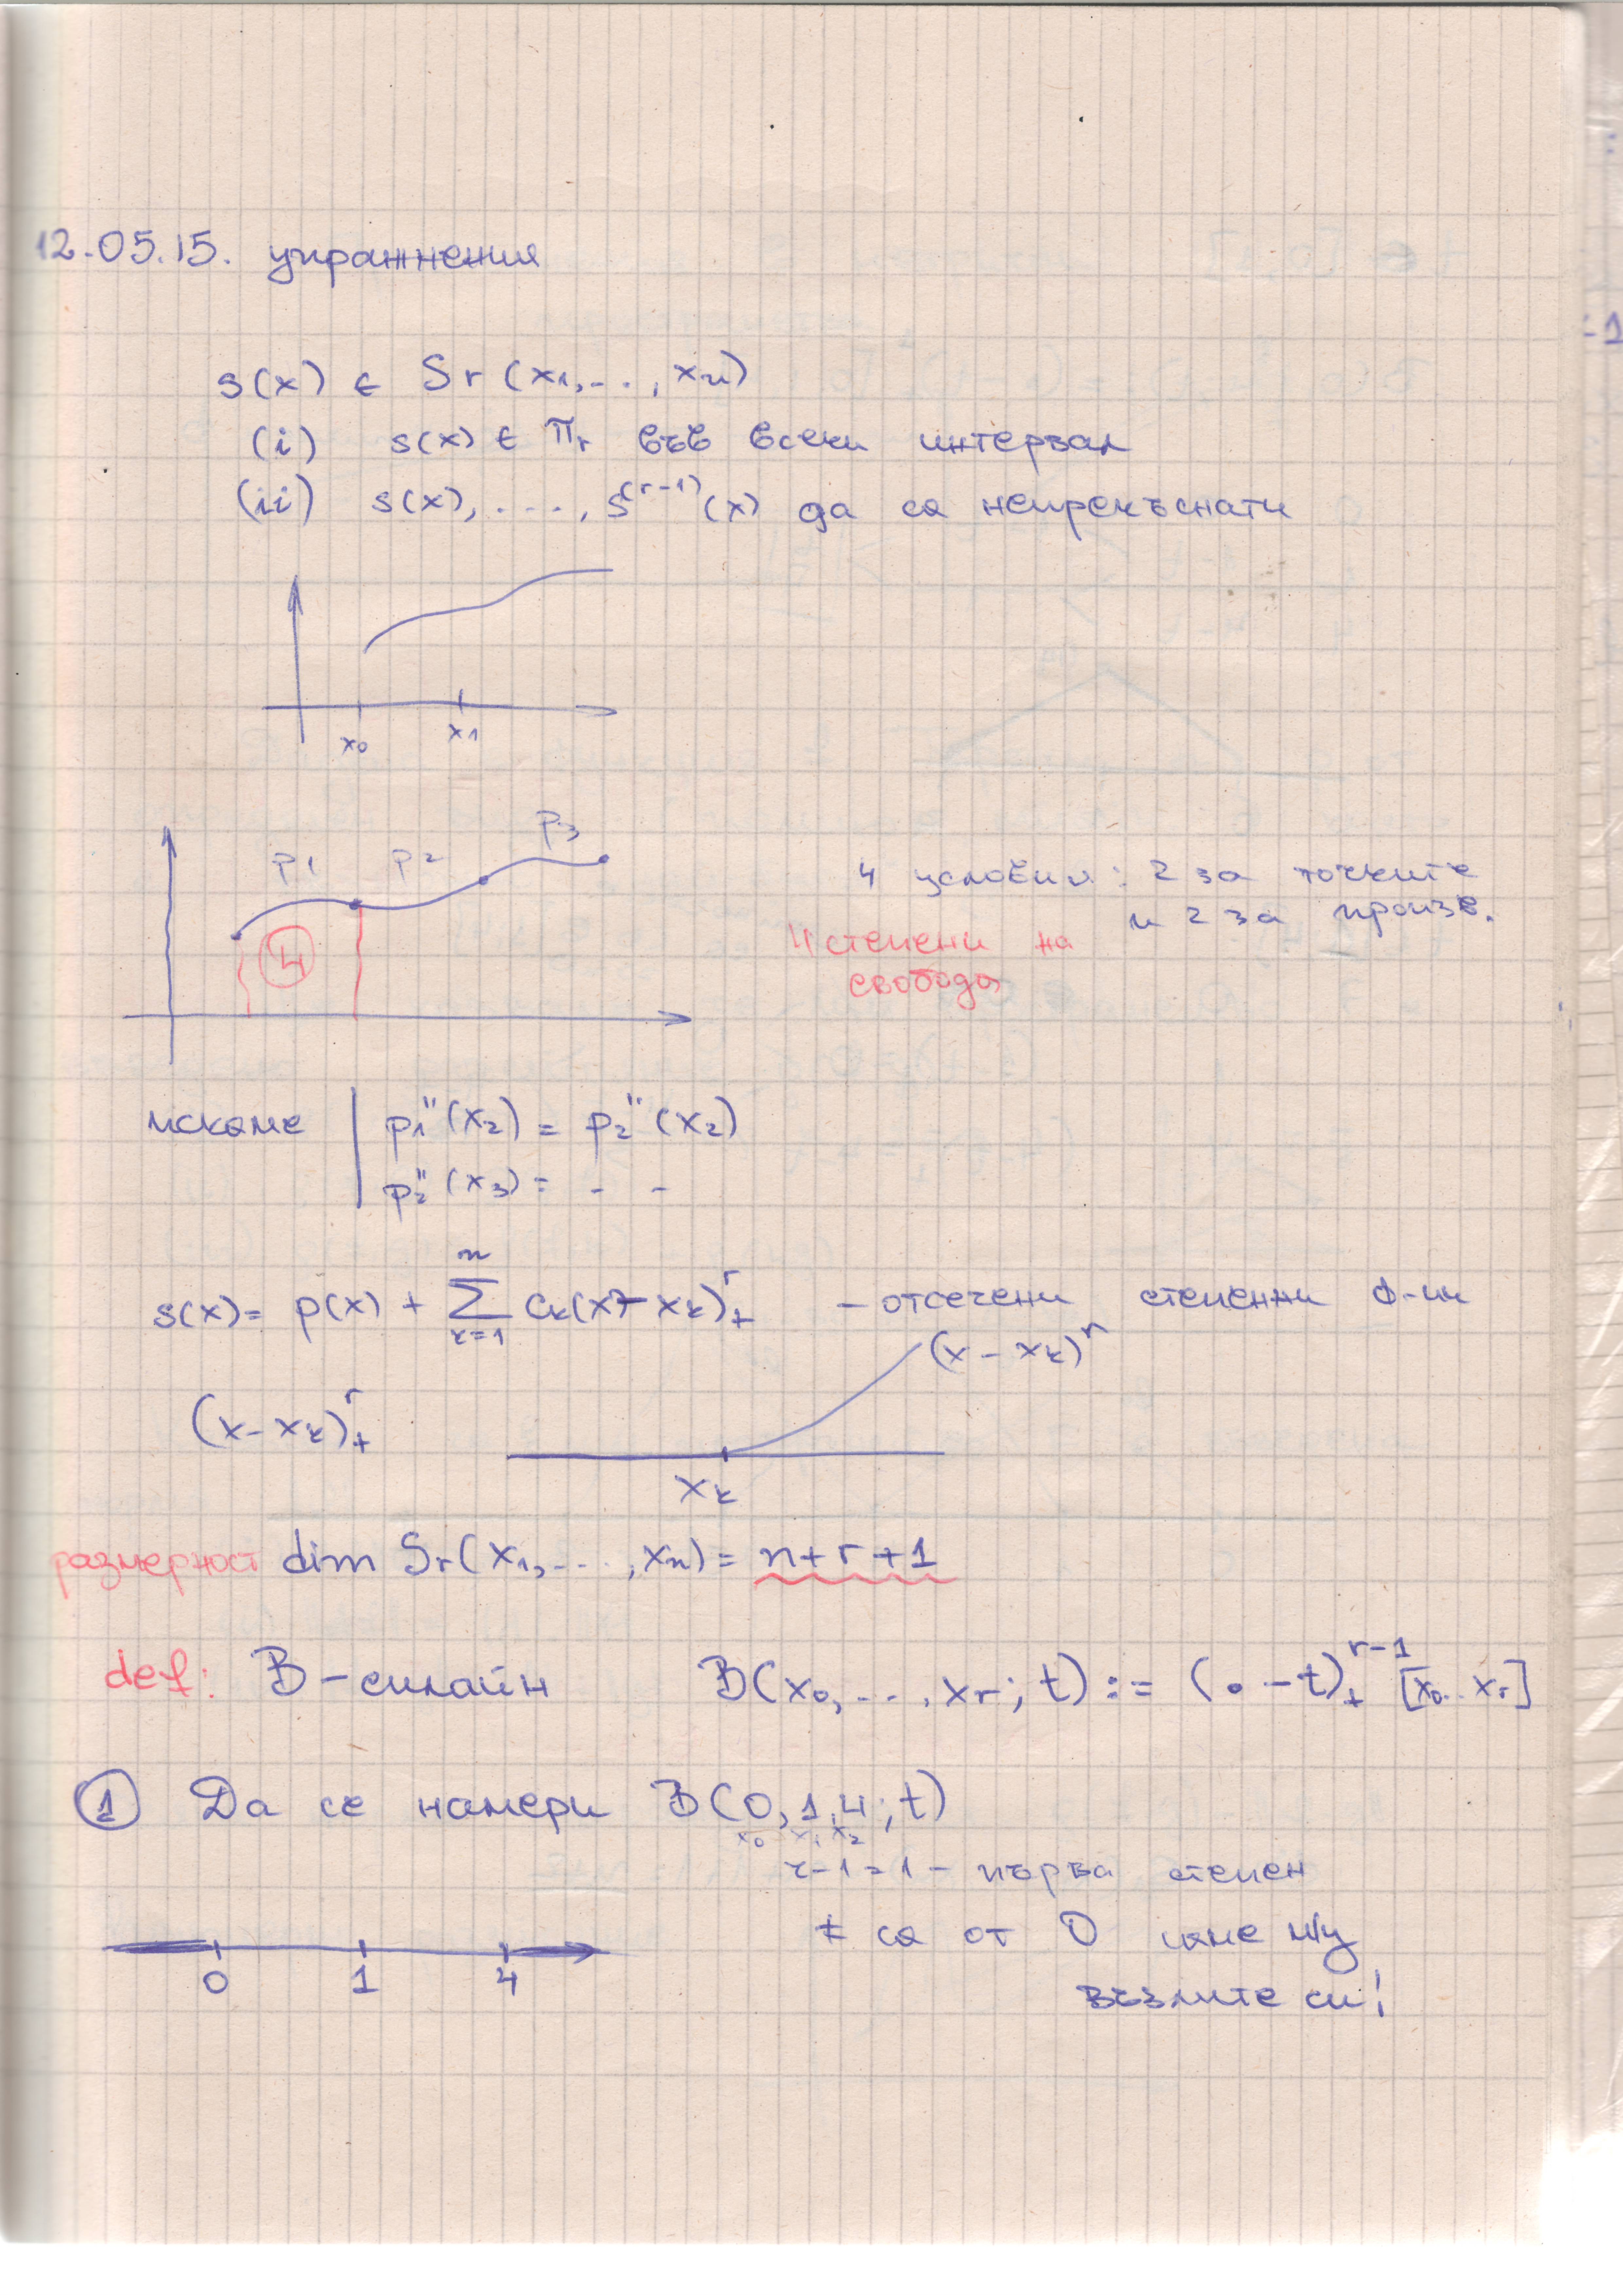 12.05.15. упражнения
s(x) ∈ Sr (x1,..., xn)
(i) s(x) ∈ πr във всеки интервал
(ii) s(x), ...., s^(r-1)(x) да са непрекъснати
x0 x1
p1 p2 p3
4
4 условия: 2 за точките
и 2 за произв.
4 степени на
свобода
искаме | p1''(x2) = p2''(x2)
p2''(x3) = - -
s(x) = p(x) + ∑_{k=1}^{n} ck(x - xk)_+^r - отсечени степенни ф-ии
(x - xk)^r
(x - xk)_+^r
xk
размерност dim Sr(x1,...,xn) = n+r+1
def: B-сплайн B(x0,...,xr; t) := (• - t)_+^{r-1} [x0..xr]
① Да се намери B(0,1,4;t)
x0 x1 x2
r-1=1 - първа степен
≠ са от 0 само м/у
възлите си!
0 1 4